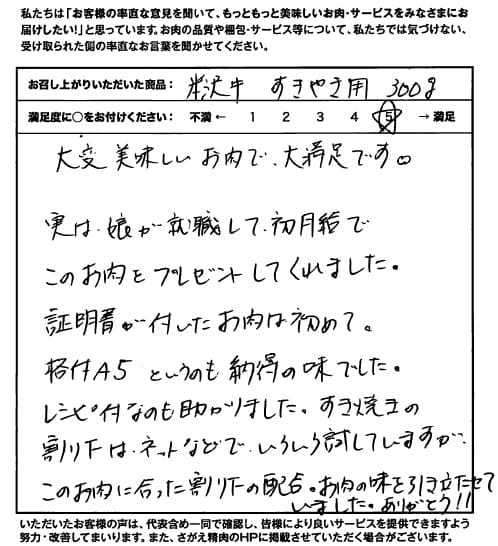 私たちは「お客様の率直な意見を聞いて、もっともっと美味しいお肉・サービスをみなさまにお
届けしたい！」と思っています。お肉の品質や梱包・サービス等について、私たちでは気づけない、
受け取られた側の率直なお言葉を聞かせてください。
お召し上がりいただいた商品： 米沢牛 すきやき用 300g
満足度に○をお付けください： 不満 ← 1 2 3 4 5 → 満足
大変美味しいお肉で、大満足です。
実は、娘が就職して、初月給で
このお肉をプレゼントしてくれました。
証明書が付いたお肉は初めて。
格付A5というのも納得の味でした。
レシピ付なのも助かりました。すき焼きの
割り下は、ネットなどで、いろいろ試していますが、
このお肉に合った割り下の配合。お肉の味を引き立たせて
いました。ありがとう!!
いただいたお客様の声は、代表含め一同で確認し、皆様により良いサービスを提供できますよう
努力・改善してまいります。また、さがえ精肉のHPに掲載させていただく場合がございます。